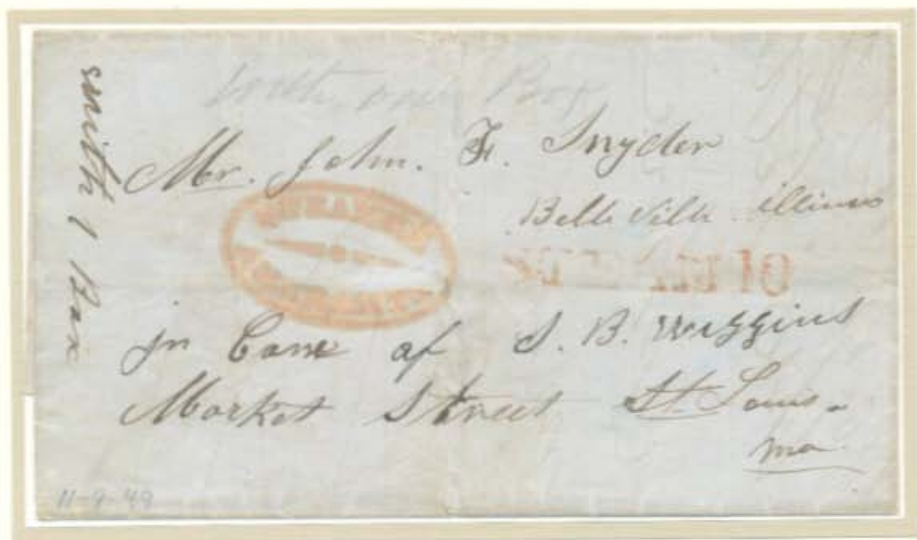 smith 1 Box
with one Box
Mr. John. F. Snyder
Belleville illinois
in Care of S. B. Wiggins
Market Street St. Louis.
mo
11-9-49